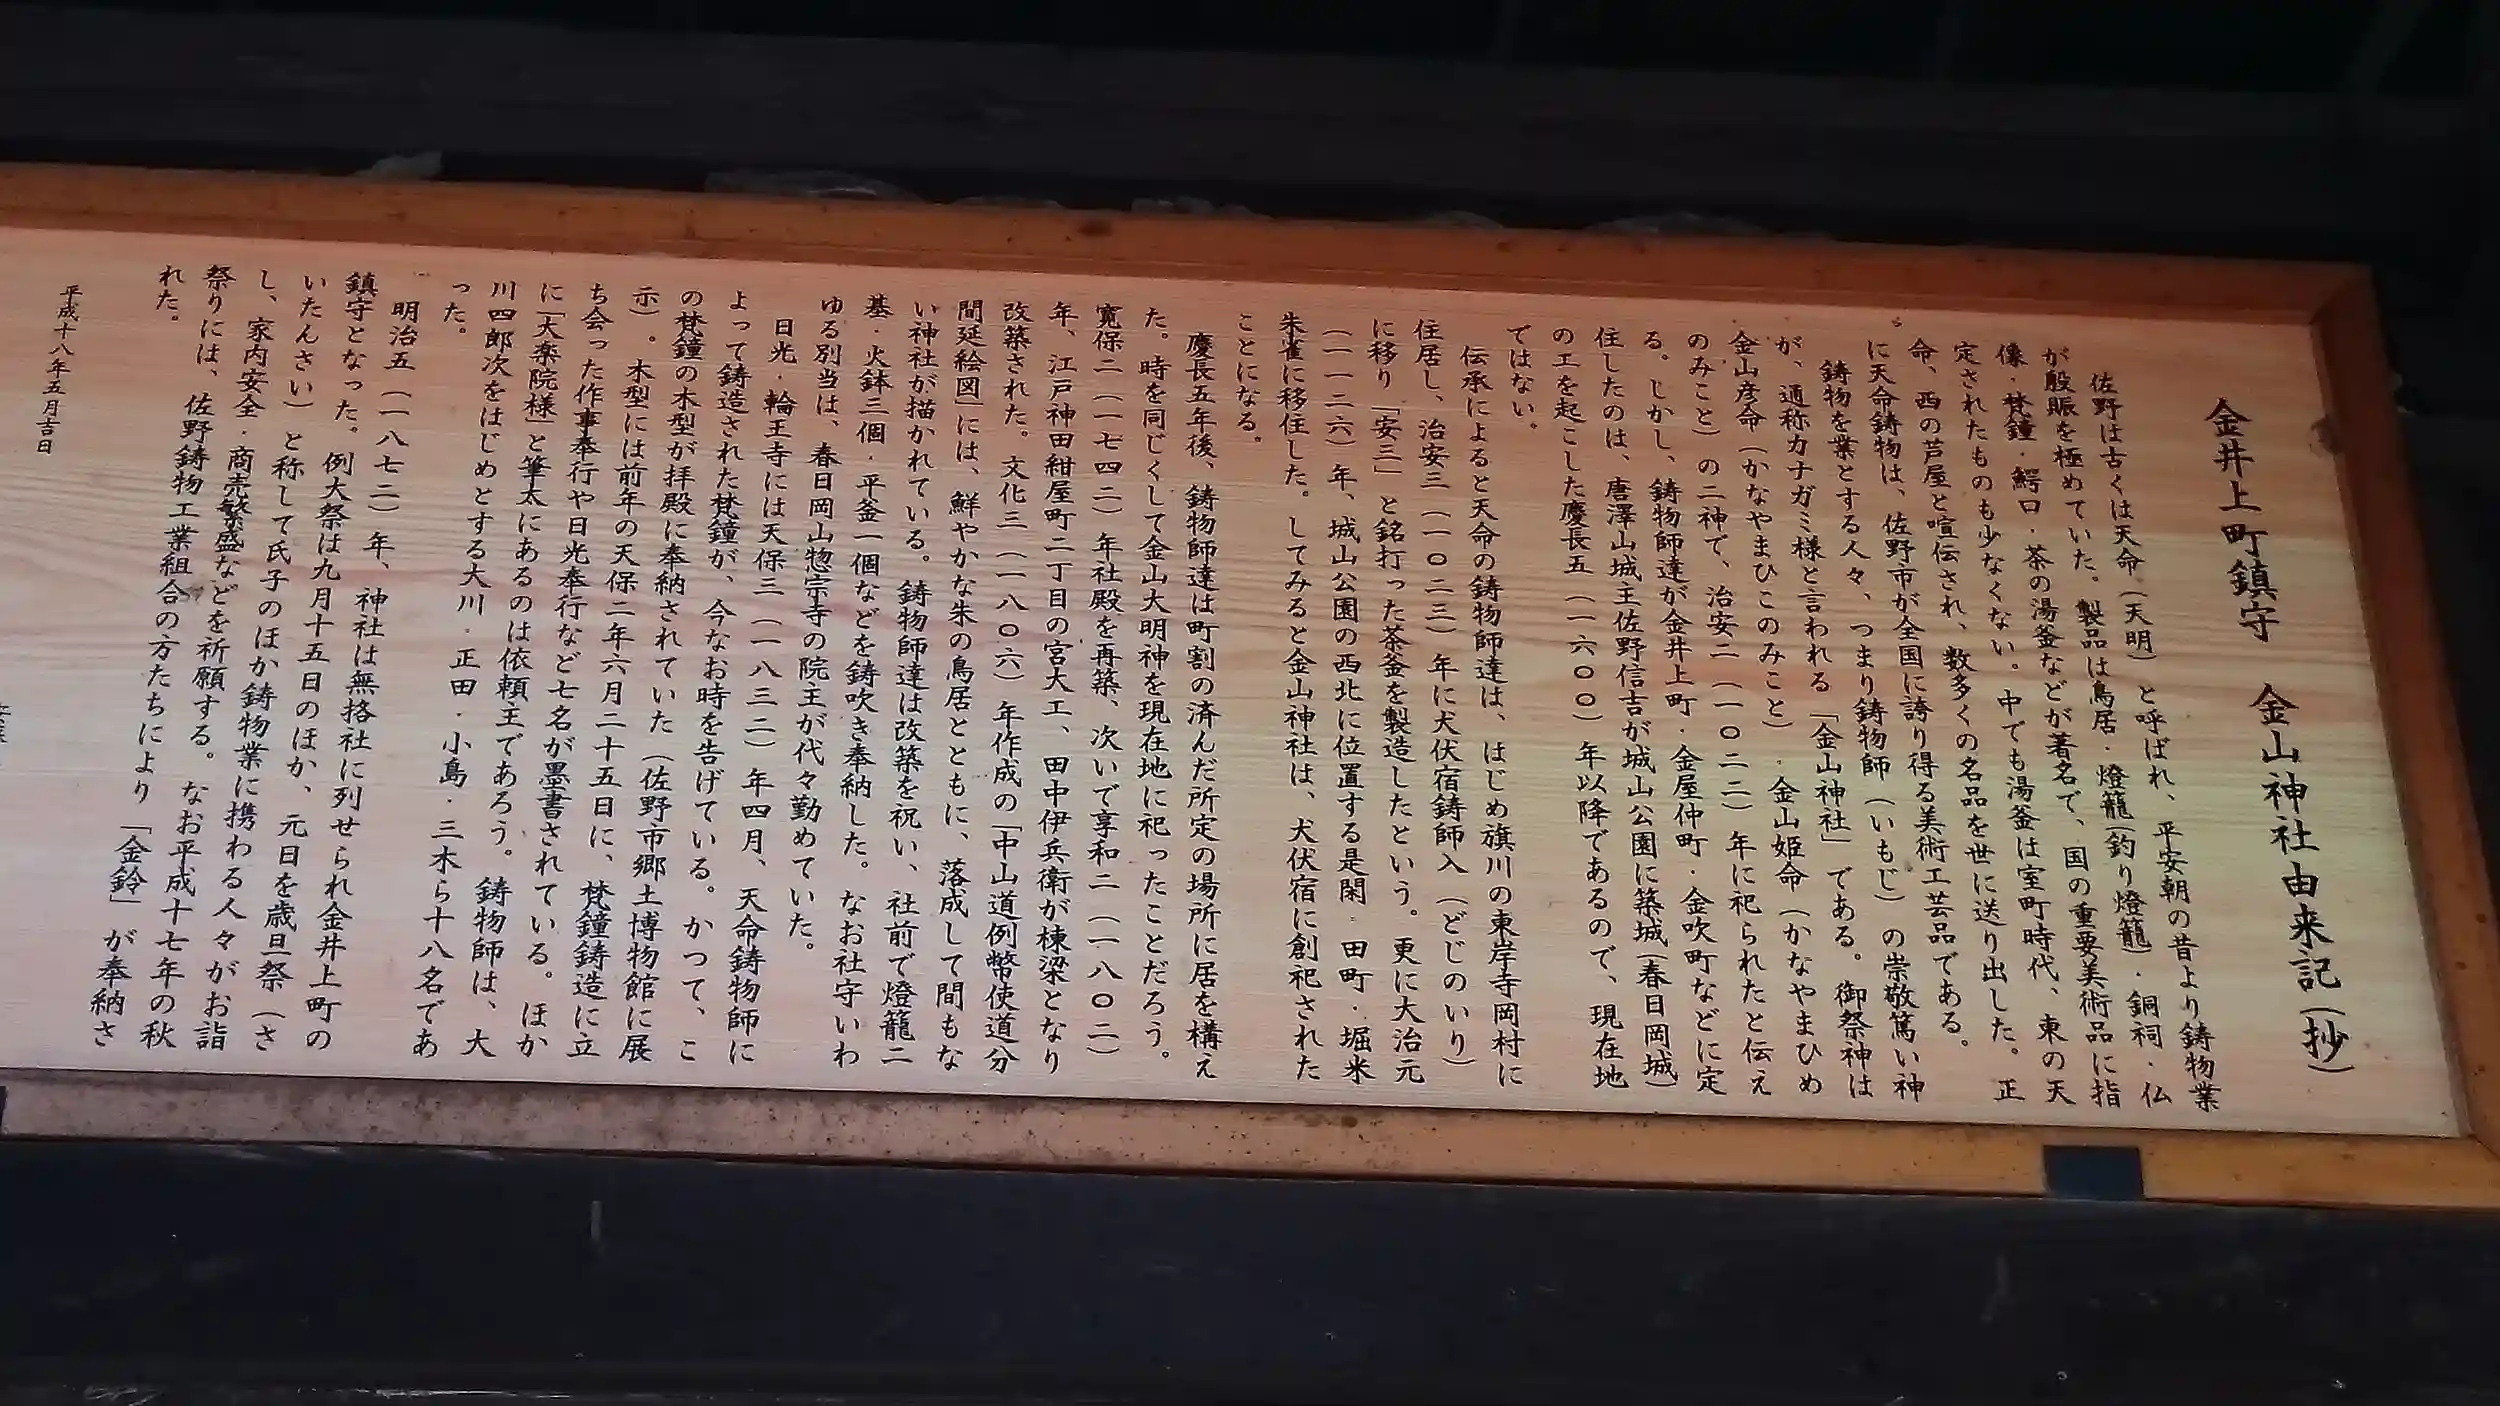 金井上町鎮守　金山神社由来記（抄）
佐野は古くは天命（天明）と呼ばれ、平安朝の昔より鋳物業
が殷賑を極めていた。製品は鳥居・燈籠（釣り燈籠）・銅祠・仏
像・梵鐘・鰐口・茶の湯釜などが著名で、国の重要美術品に指
定されたものも少なくない。中でも湯釜は室町時代、東の天
命、西の芦屋と喧伝され、数多くの名品を世に送り出した。正
に天命鋳物は、佐野市が全国に誇り得る美術工芸品である。
鋳物を業とする人々、つまり鋳物師（いもじ）の崇敬篤い神
が、通称カナガミ様と言われる「金山神社」である。御祭神は
金山彦命（かなやまひこのみこと）・金山姫命（かなやまひめ
のみこと）の二神で、治安二（一〇二二）年に祀られたと伝え
る。しかし、鋳物師達が金井上町・金屋仲町・金吹町などに定
住したのは、唐澤山城主佐野信吉が城山公園に築城（春日岡城）
の工を起こした慶長五（一六〇〇）年以降であるので、現在地
ではない。
伝承によると天命の鋳物師達は、はじめ旗川の東岸寺岡村に
住居し、治安三（一〇二三）年に犬伏宿鋳師入（どじのいり）
に移り「安三」と銘打った茶釜を製造したという。更に大治元
（一一二六）年、城山公園の西北に位置する是閑・田町・堀米
朱雀に移住した。してみると金山神社は、犬伏宿に創祀された
ことになる。
慶長五年後、鋳物師達は町割の済んだ所定の場所に居を構え
た。時を同じくして金山大明神を現在地に祀ったことだろう。
寛保二（一七四二）年社殿を再築、次いで享和二（一八〇二）
年、江戸神田紺屋町二丁目の宮大工、田中伊兵衛が棟梁となり
改築された。文化三（一八〇六）年作成の「中山道例幣使道分
間延絵図」には、鮮やかな朱の鳥居とともに、落成して間もな
い神社が描かれている。鋳物師達は改築を祝い、社前で燈籠二
基・火鉢三個・平釜一個などを鋳吹き奉納した。なお社守いわ
ゆる別当は、春日岡山惣宗寺の院主が代々勤めていた。
日光・輪王寺には天保三（一八三二）年四月、天命鋳物師に
よって鋳造された梵鐘が、今なお時を告げている。かつて、こ
の梵鐘の木型が拝殿に奉納されていた（佐野市郷土博物館に展
示）。木型には前年の天保二年六月二十五日に、梵鐘鋳造に立
ち会った作事奉行や日光奉行など七名が墨書されている。ほか
に「大楽院様」と筆太にあるのは依頼主であろう。鋳物師は、大
川四郎次をはじめとする大川・正田・小島・三木ら十八名であ
った。
明治五（一八七二）年、神社は無挌社に列せられ金井上町の
鎮守となった。例大祭は九月十五日のほか、元日を歳旦祭（さ
いたんさい）と称して氏子のほか鋳物業に携わる人々がお詣
し、家内安全・商売繁盛などを祈願する。なお平成十七年の秋
祭りには、佐野鋳物工業組合の方たちにより「金鈴」が奉納さ
れた。
平成十八年五月吉日